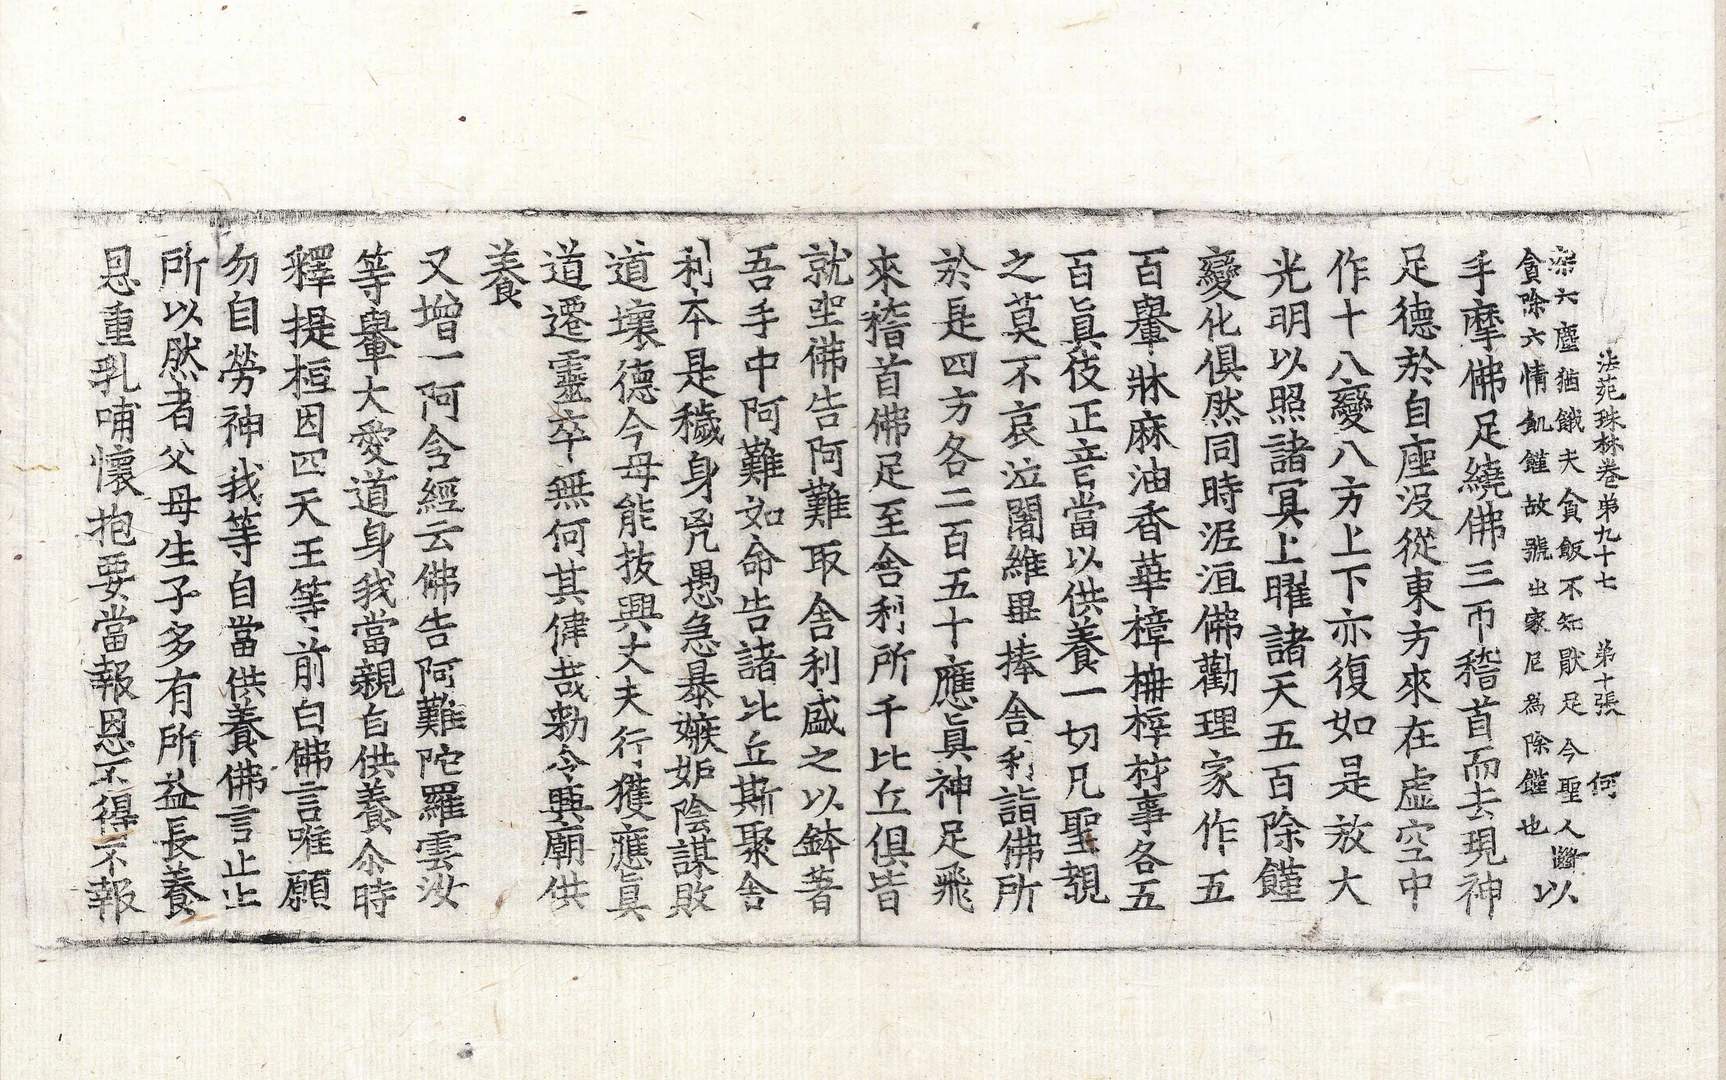 法苑珠林卷第九十七　第十張　何
染六塵猶餓夫貪飯不知厭足今聖人斷
貪除六情飢饉故號出家尼爲除饉也
以
手摩佛足繞佛三帀稽首而去現神
足德於自座没從東方來在虛空中
作十八變八方上下亦復如是放大
光明以照諸冥上曜諸天五百除饉
變化俱然同時泥洹佛勸理家作五
百轝牀麻油香華樟柟梓材事各五
百眞伎正音當以供養一切凡聖覩
之莫不哀泣闍維畢捧舎利詣佛所
於是四方各二百五十應眞神足飛
來稽首佛足至舎利所千比丘俱皆
就坐佛告阿難取舎利盛之以鉢著
吾手中阿難如命告諸比丘斯聚舎
利本是穢身兇愚急暴嫉妒陰謀敗
道壞德今母能拔興丈夫行獲應眞
道遷靈卒無何其偉哉勑令興廟供
養
又增一阿含經云佛告阿難陀羅雲汝
等轝大愛道身我當親自供養尒時
釋提桓因四天王等前白佛言唯願
勿自勞神我等自當供養佛言止止
所以然者父母生子多有所益長養
恩重乳哺懷抱要當報恩不得不報